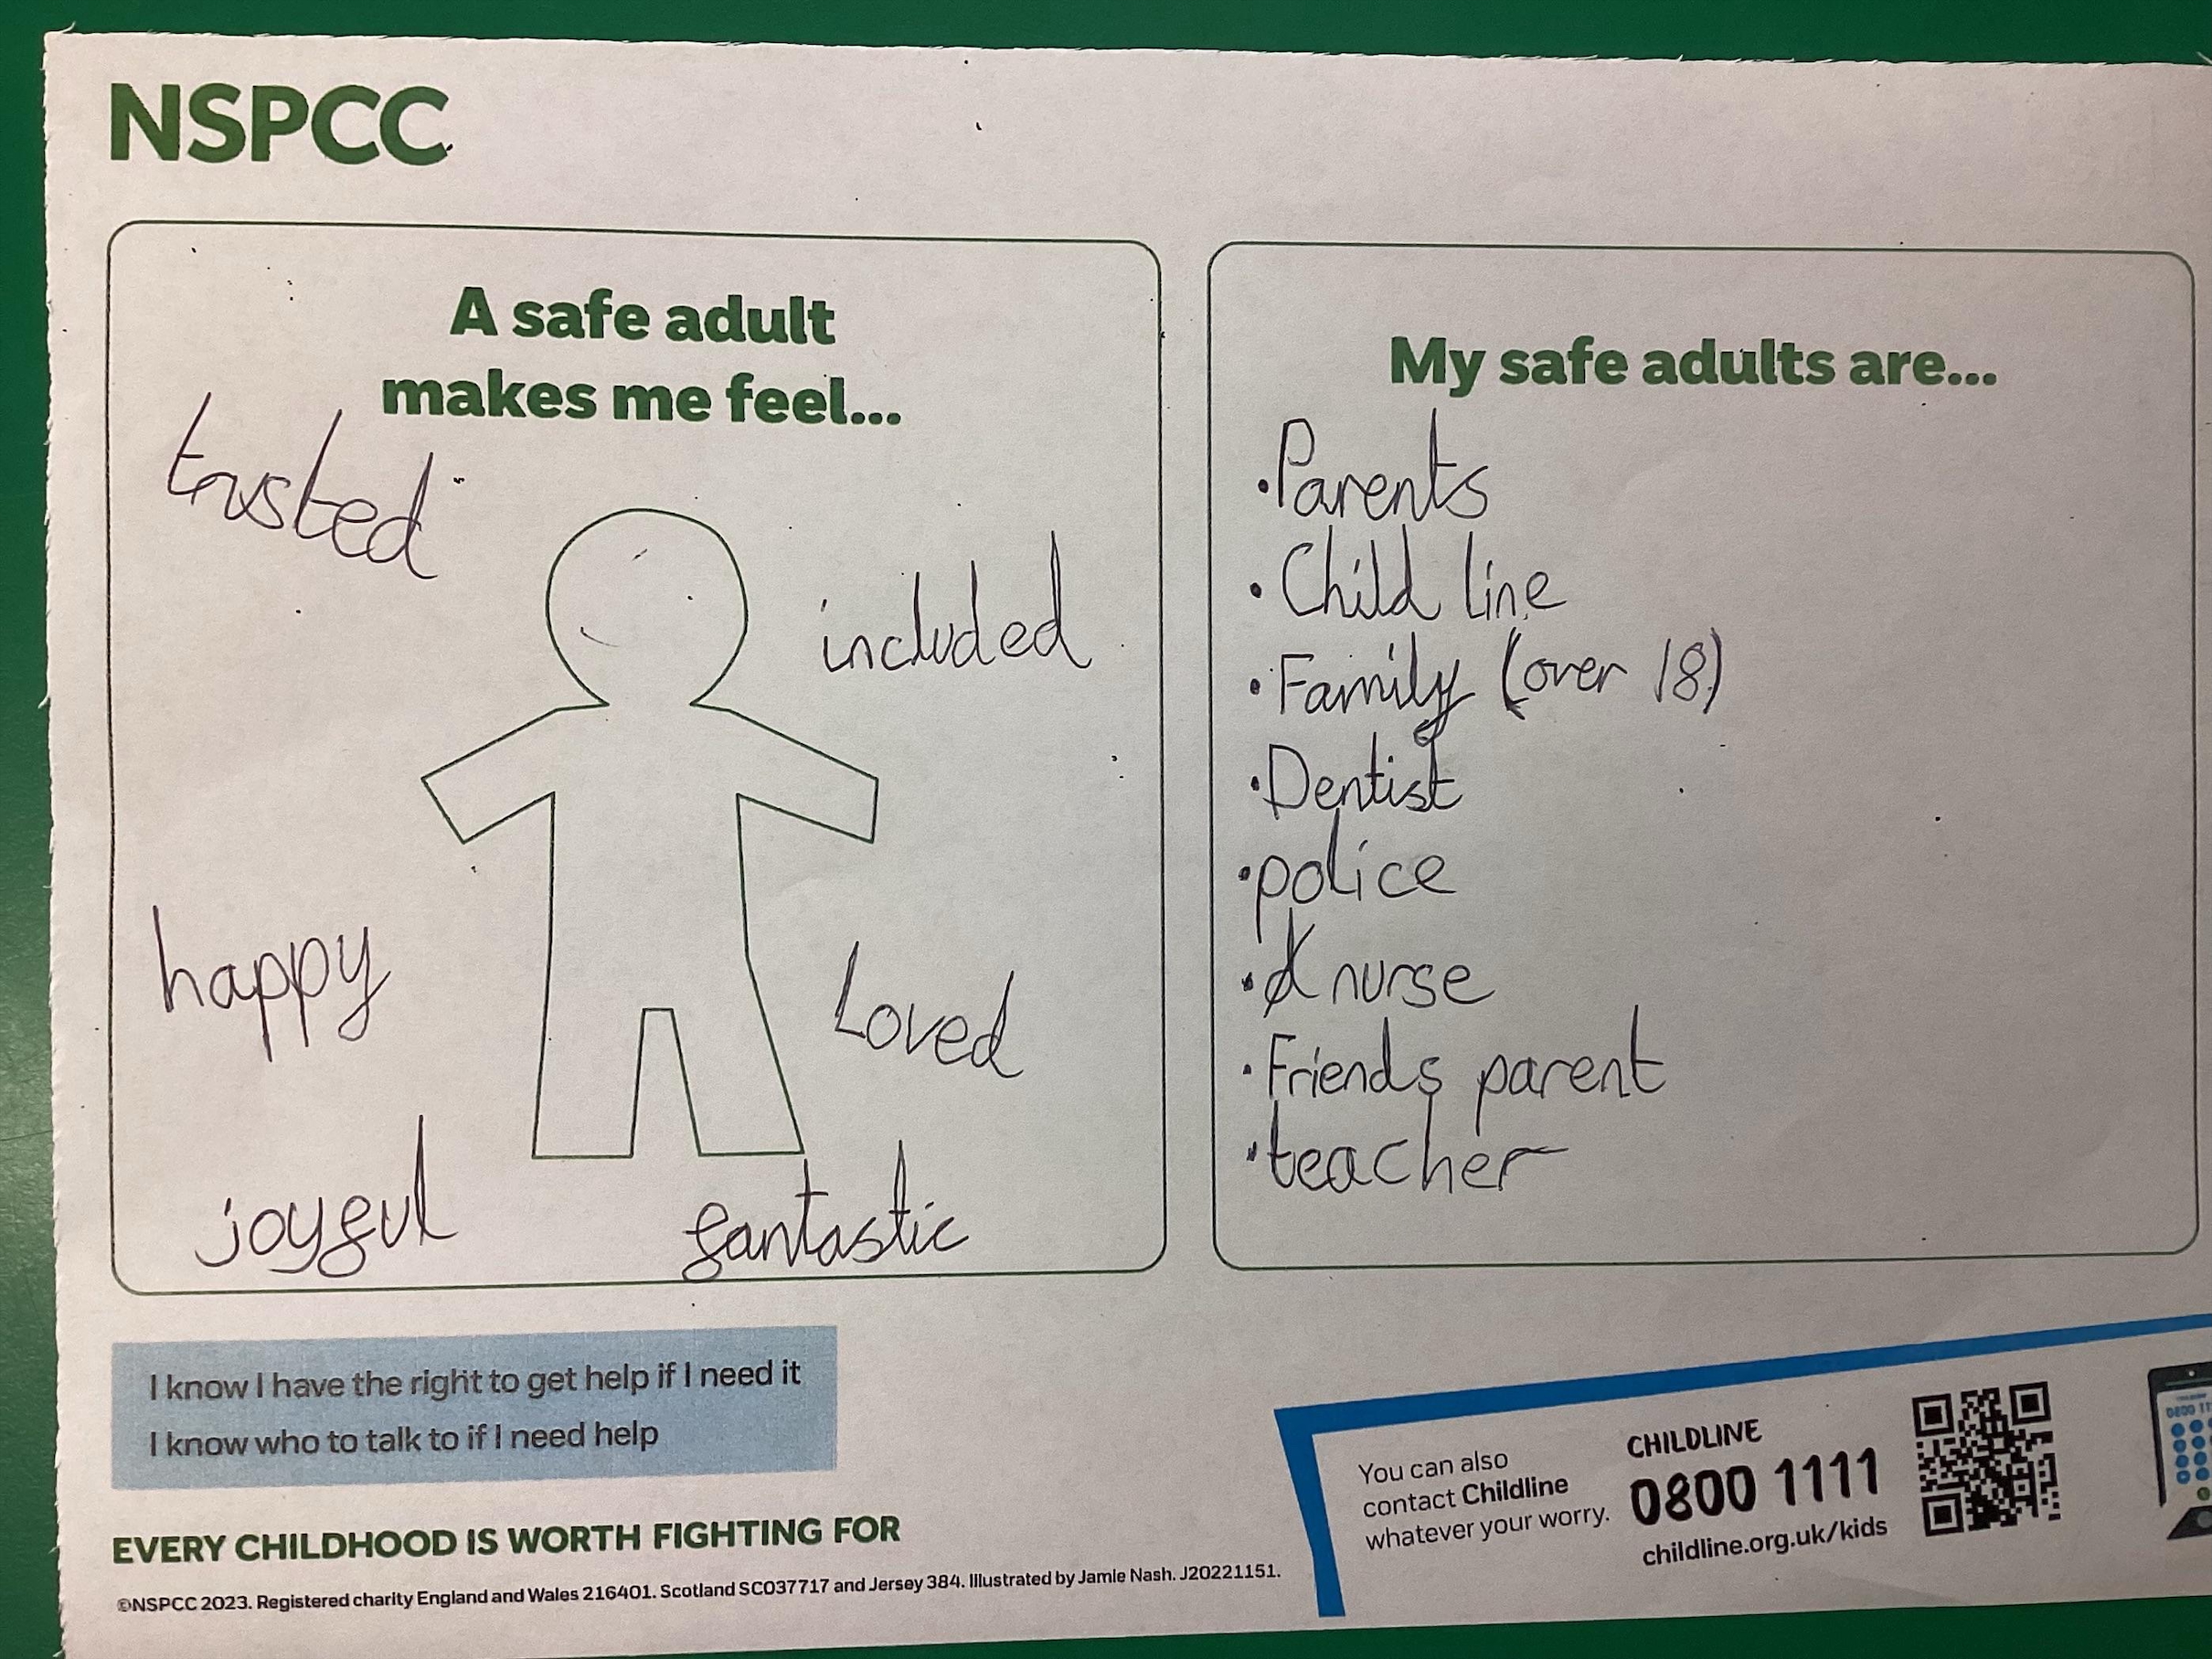 NSPCC
A safe adult
makes me feel...
trusted
included
happy
Loved
joyful
fantastic
My safe adults are...
• Parents
• Child line
• Family (over 18)
• Dentist
• police
• nurse
• Friends parent
• teacher
I know I have the right to get help if I need it
I know who to talk to if I need help
EVERY CHILDHOOD IS WORTH FIGHTING FOR
©NSPCC 2023. Registered charity England and Wales 216401. Scotland SC037717 and Jersey 384. Illustrated by Jamie Nash. J20221151.
You can also
contact Childline
whatever your worry.
CHILDLINE
0800 1111
childline.org.uk/kids